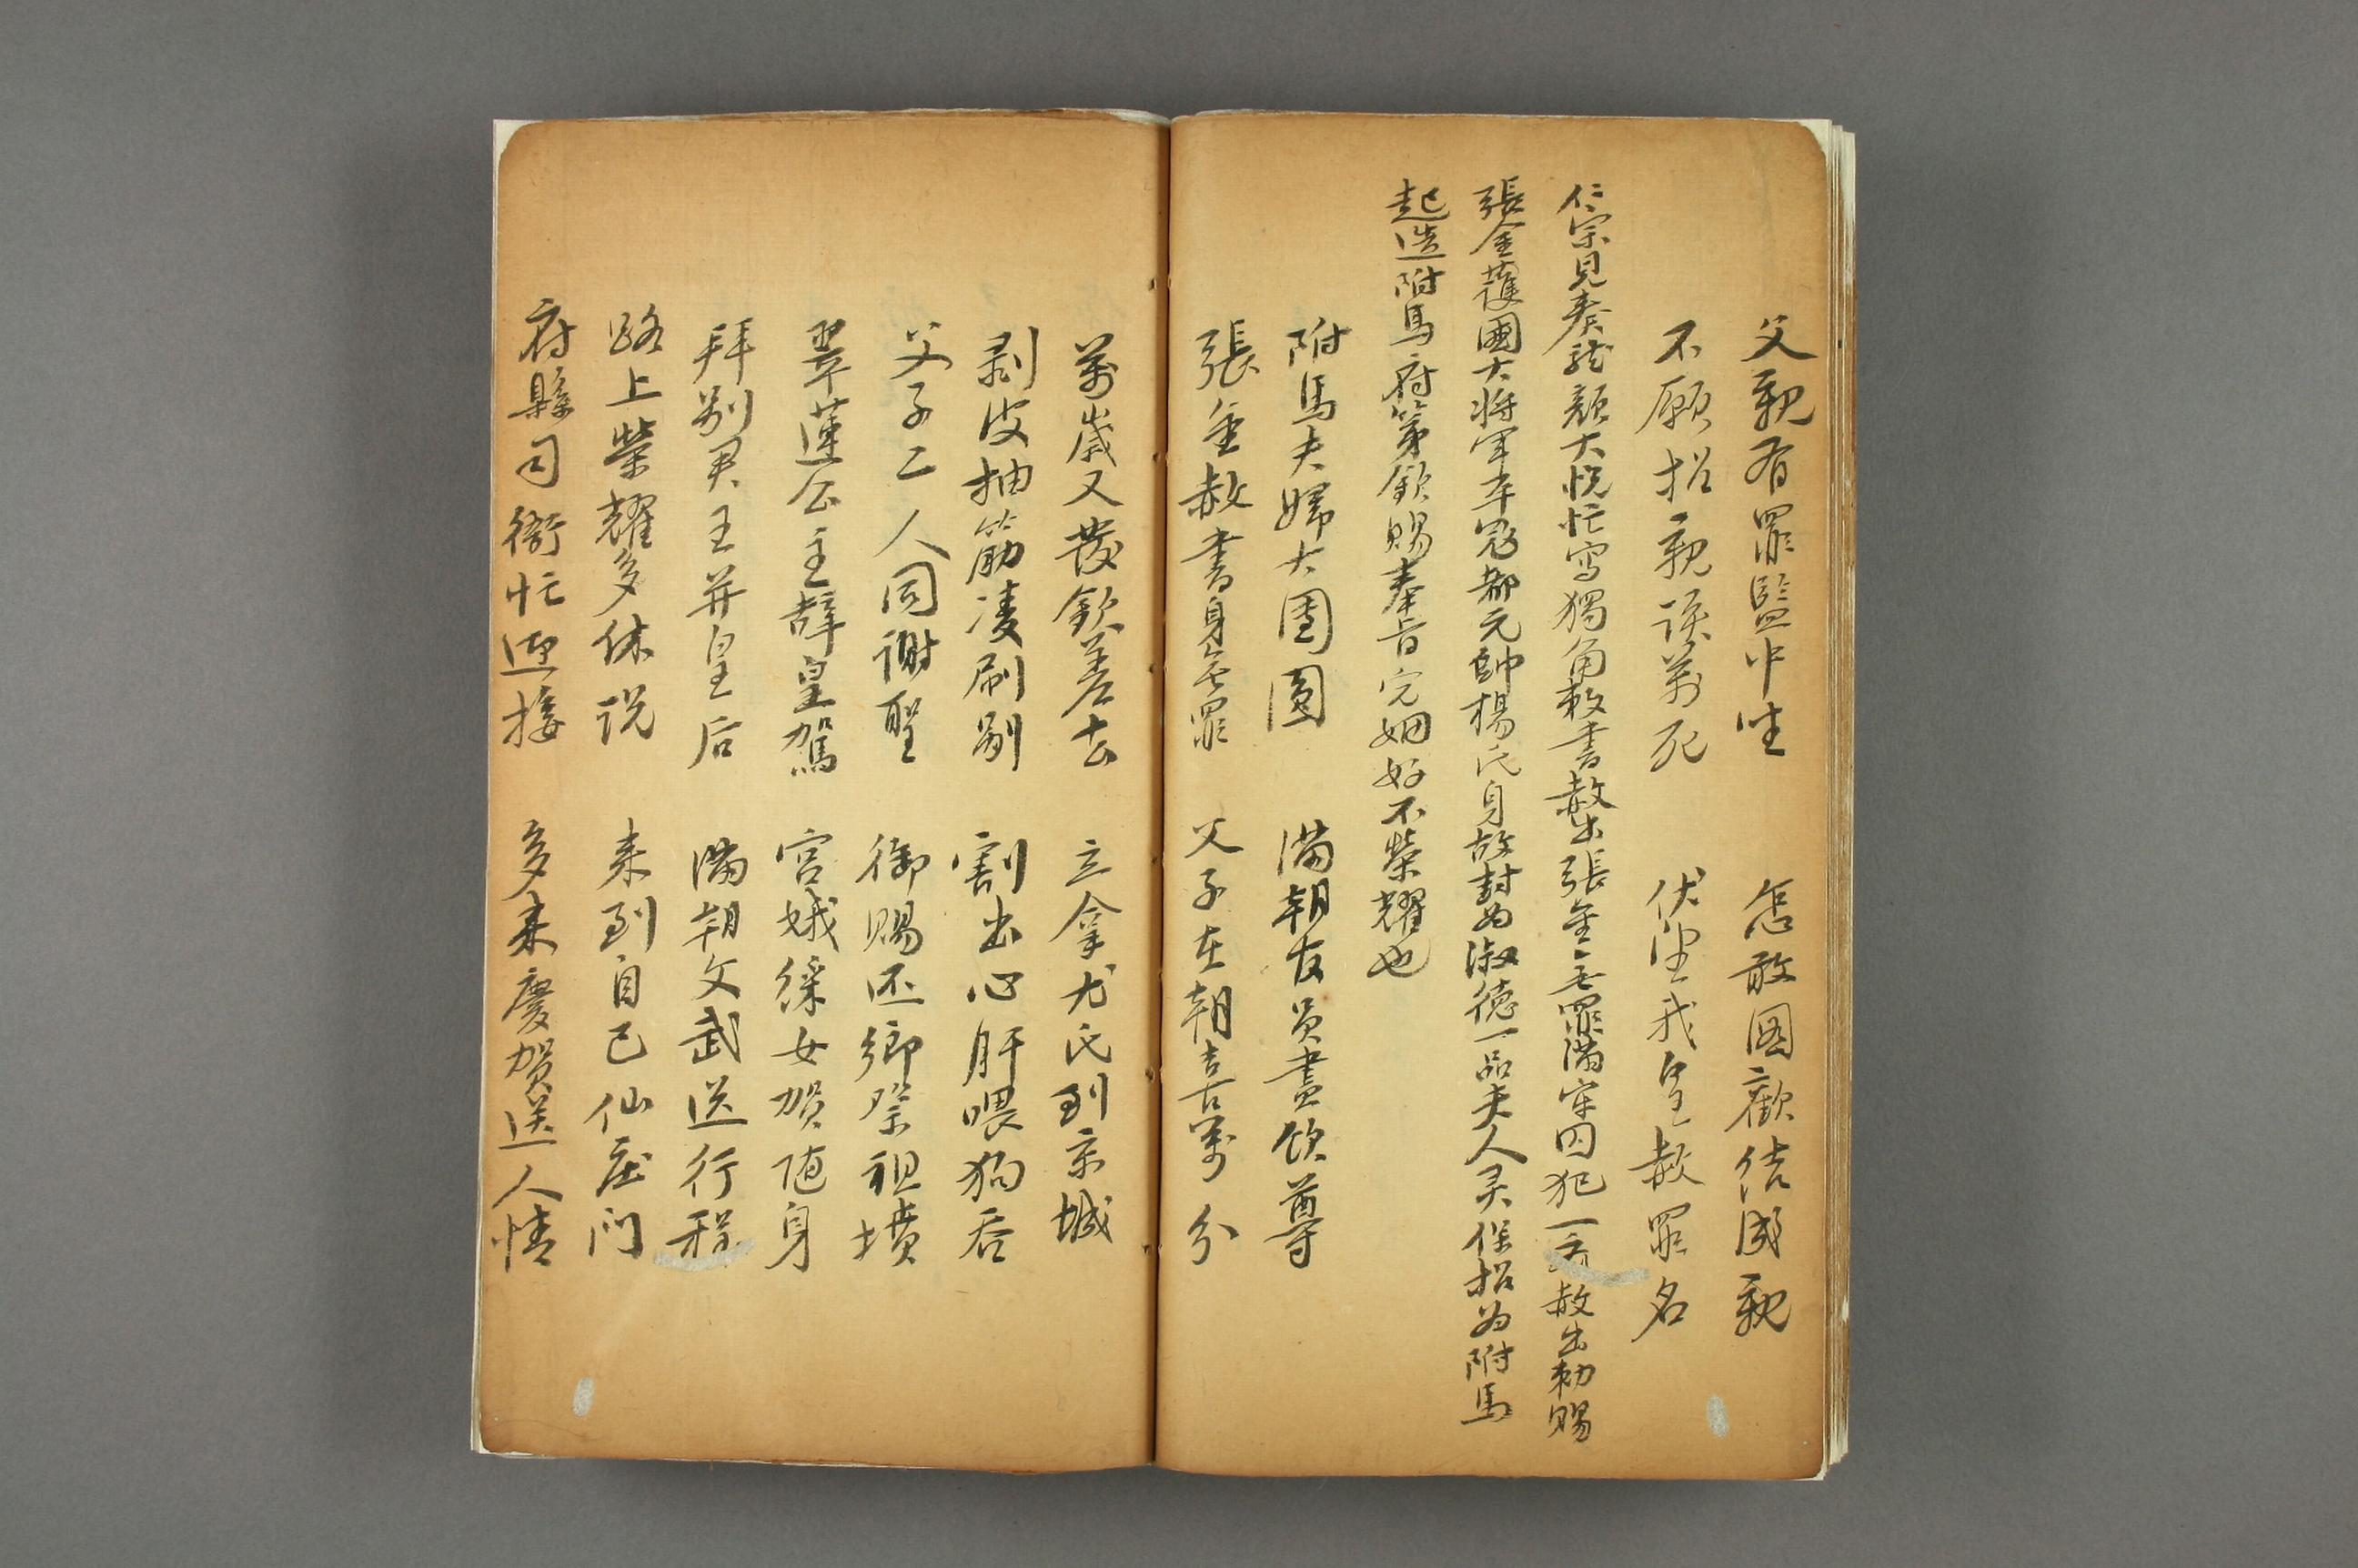 父親有罪監中坐　怎敢圖歡結成親
不願招親該萬死　伏望我皇赦罪名
仁宗見奏龍顏大悅忙寫獨角赦書赦出張金一无罪滿牢囚犯一㮣赦出勅賜
張金護國大將軍卒冠都元帥楊氏身故封为淑德一品夫人灵保招为附馬
起造附馬府第欽賜奉旨完姻好不榮耀也
附馬夫婦大團圓　滿朝友员盡飲尊
張金赦書身无罪　父子在朝喜萬分
萬歲又發欽差去　立拿尤氏到京城
剥皮抽筋凌刷剐　割出心肝喂狗吞
父子二人同謝聖　御賜还鄉祭祖墳
翠蓮公主辞皇駕　宮娥綵女賀随身
拜别君王并皇后　滿朝文武送行程
路上榮耀多休说　来到自己仙庄门
府縣司衙忙迎接　多来慶贺送人情